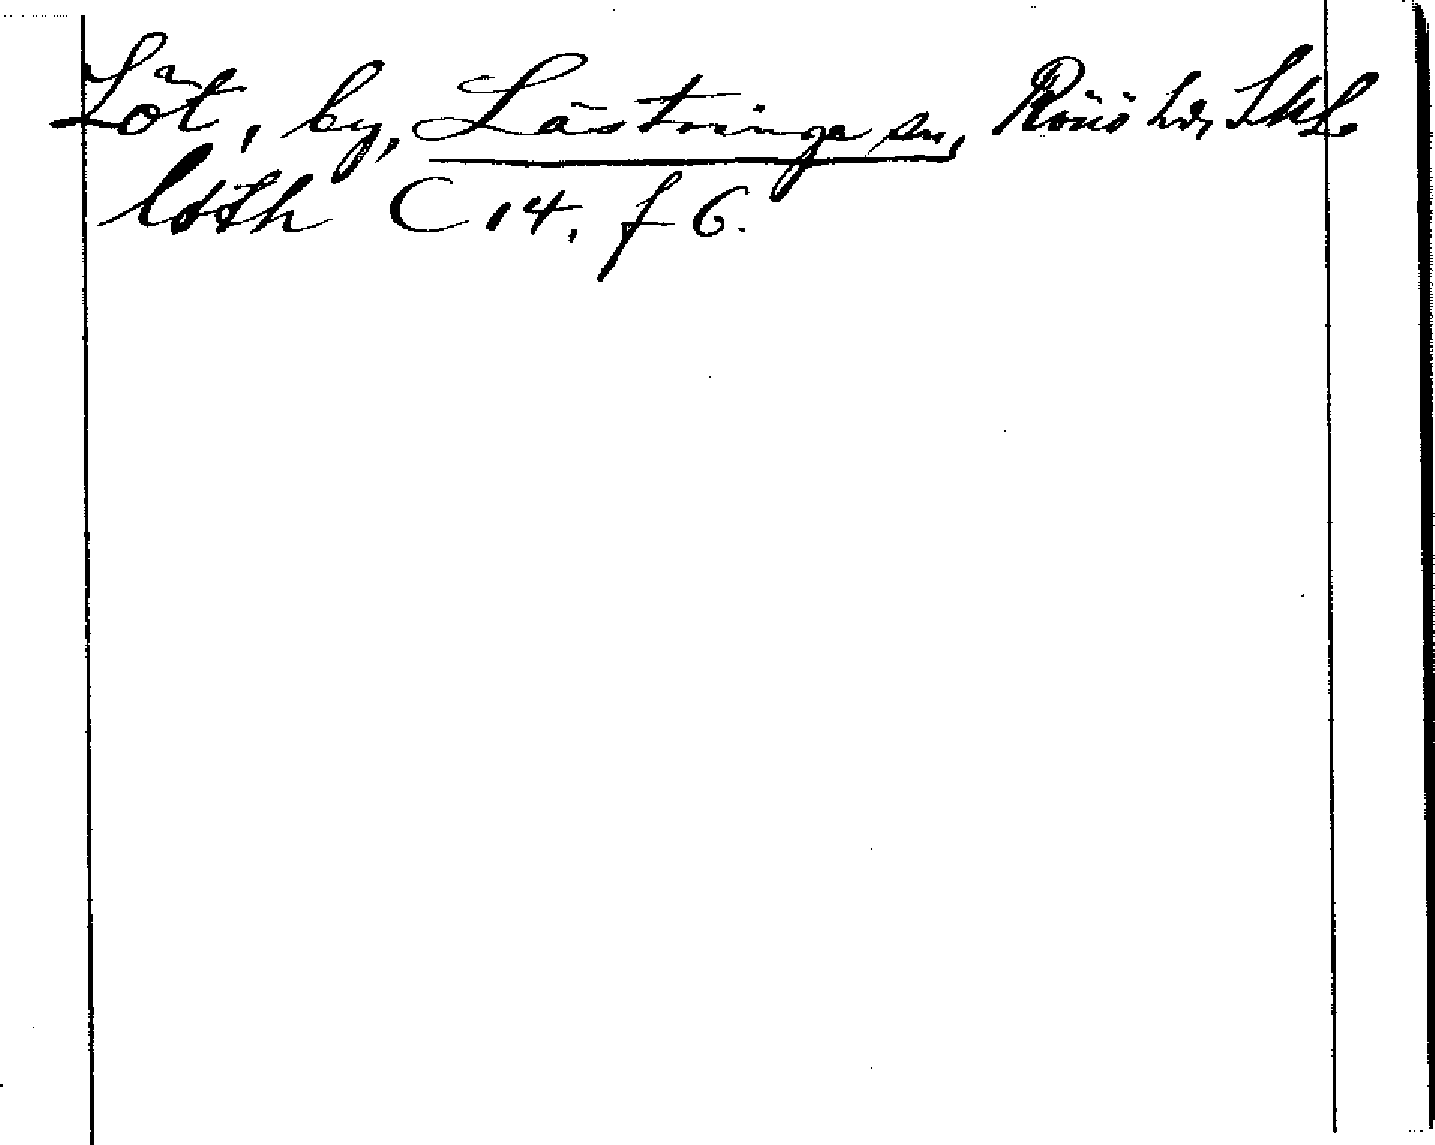 Löt, by, Lästringe sn, Rönö hd, Skl.
löth C 14, f 6.